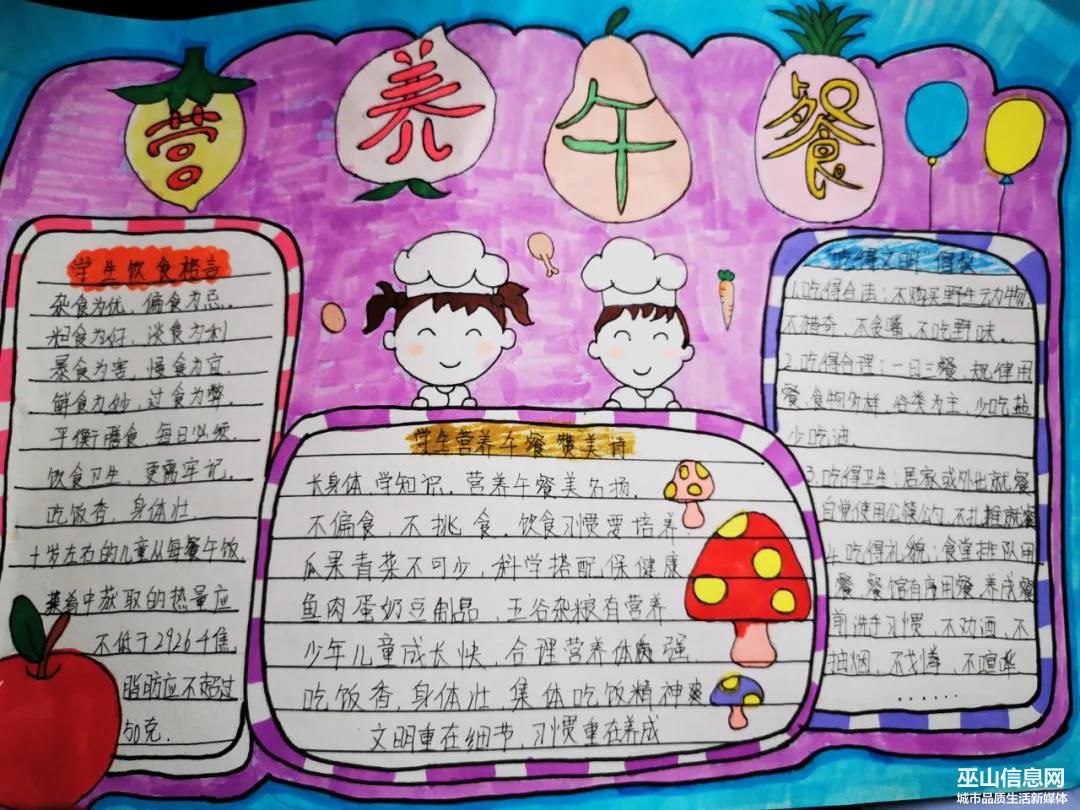 营养午餐
学生饮食格言
杂食为优，偏食为忌.
粗食为好，淡食为利
暴食为害，慢食为宜.
鲜食为妙，过食为弊.
平衡膳食，每日必须.
饮食卫生，更需牢记.
吃饭香，身体壮.
十岁左右的儿童从每餐午饭
菜肴中获取的热量应
不低于2926千焦，
脂肪应不超过
50克.
学生营养午餐赞美诗
长身体，学知识，营养午餐美名扬.
不偏食，不挑食，饮食习惯要培养.
瓜果青菜不可少，科学搭配保健康
鱼肉蛋奶豆制品，五谷杂粮有营养
少年儿童成长快，合理营养体质强.
吃饭香，身体壮，集体吃饭精神爽
文明重在细节，习惯重在养成
吃得文明 倡议
1.吃得合法：不购买野生动物，
不猎奇、不贪嘴，不吃野味。
2.吃得合理：一日三餐，规律用
餐，食物多样，谷类为主，少吃盐
少吃油.
3.吃得卫生：居家或外出就餐
自觉使用公筷公勺，不扎堆就餐
4.吃得礼貌：食堂排队用
餐、餐馆有序用餐，养成餐
前洗手习惯，不劝酒，不
抽烟，不划拳，不喧哗
......
巫山信息网
城市品质生活新媒体